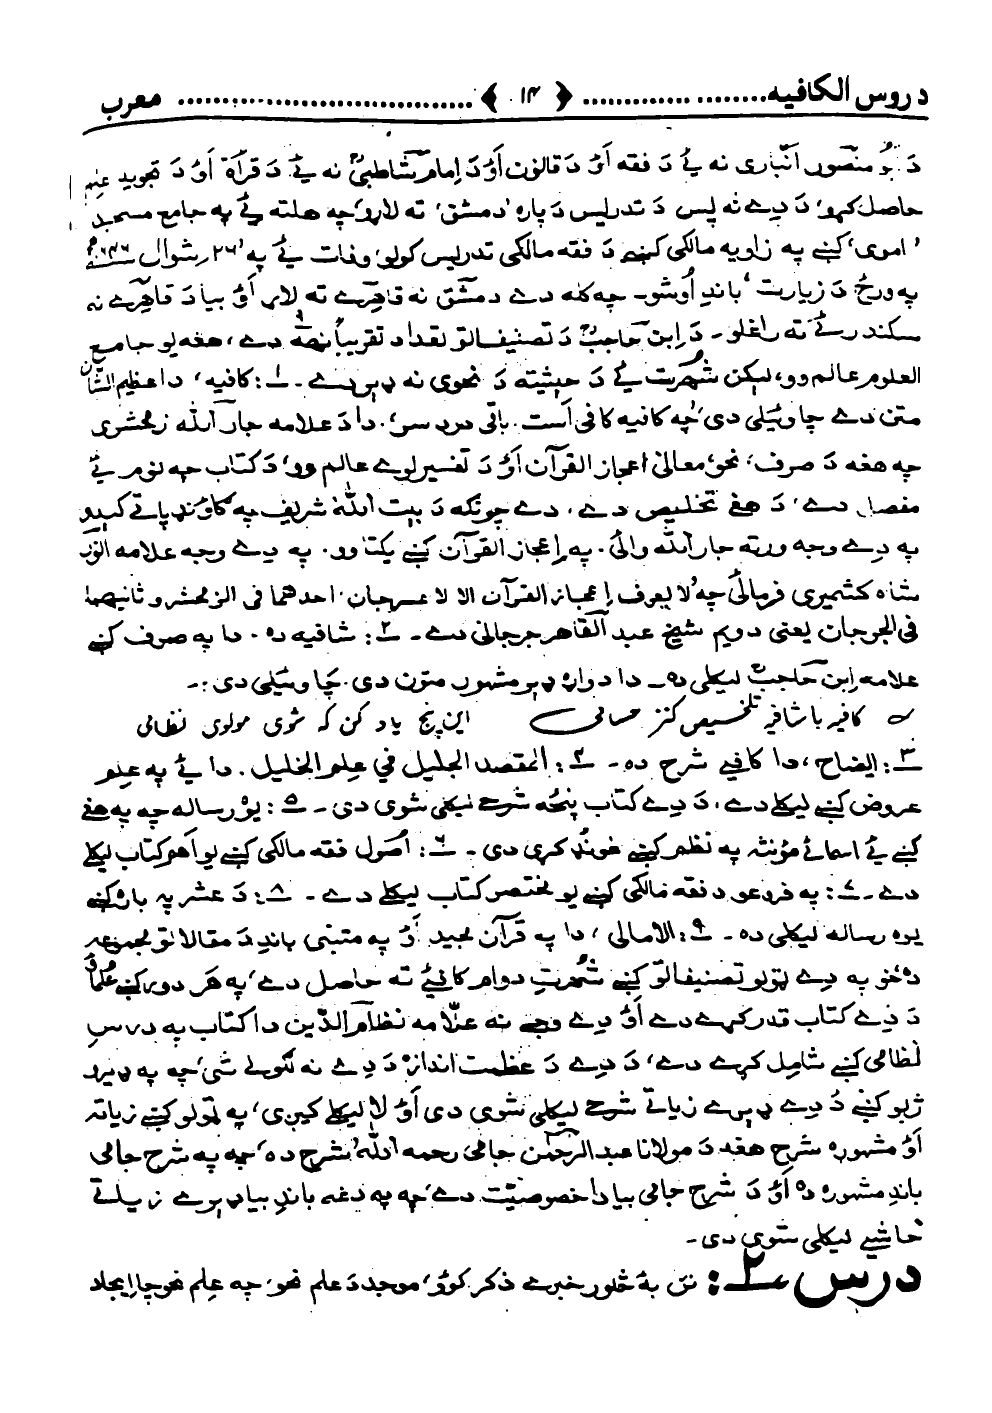 دروس الکافیه ........................ ﴿ ١٤ ﴾ ........................ معرب
دَ بُو منصور انباری نه ئے دَ فقه اَوْ دَ قانون اَوْ دَ اِمام شاطبیؒ نه ئے دَ قرآة اَوْ دَ تجوید علم
حاصل کړو، دَ دے نه پس دَ تدریس دَ پاره ’دمشق‘ ته لاړو چه هلته ئے په جامع مسجد
’اموی‘ کښے په زاویه مالکی کښے دَ فقه مالکی تدریس کولو، وفات ئے په ’٢٦ شوال ٦٤٦ﻫ
په ورځ دَ زیارت ’باندِ اُوشو۔ چه کله دے دمشق نه قاهرے ته لاړ اَوْ بیا دَ قاهرے نه
سکندریے ته راغلو۔ دَ اِبن حاجبؒ دَ تصنیفاتو تعداد تقریباً نهه دے، هغه یو جامع
العلوم عالم وو، لیکن شهرت ئے دَ حیثیته دَ نحوی نه ډیر دے۔ ١ـ: کافیه، دا عظیم الشان
متن دے چا وئیلی دی ’چه کافیه کافی است. باقی درد سری‘. دا دَ علامه جار الله زمخشری
چه هغه دَ صرف، نحو، معانی اعجاز القرآن اَوْ دَ تفسیر لوے عالم وو، دَ کتاب چه نوم ئے
مفصل دے، دَ هغے تخلیص دے، دے چونکه دَ بیت الله شریف په ګاونډ پاتے کېدو
په دے وجه ورته جار الله وائی. په اِعجاز القرآن کښے یکتا وو. په دے وجه علامه انور
شاه کشمیری فرمائی چه ’لا یعرف اِعجاز القرآن الا لاعرجان، احدهما فی الزمحشر و ثانیهما
فی الجرجان یعنی دویم شیخ عبد القاهر جرجانی دے۔ ٢ـ: شافیه ده. دا په صرف کښے
علامه اِبن حاجبؒ لیکلی ده۔ دا دواړه ډېر مشهور متون دی. چا وئیلی دی:۔
؎ کافیه با شافیه تلخیص کنز حسامی این پنج یاد کن که شوی مولوی نظامی
٣ـ: ایضاح، دا کافیے شرح ده۔ ٤ـ: المقصد الجلیل فی علم الخلیل. دا ئے په علم
عروض کښے لیکلے دے، دَ دے کتاب پنځه شرح لیکلی شوی دی۔ ٥ـ: یوْ رساله چه په هغے
کښے ئے اسمائے مؤنثه په نظم کښے غونډ کړی دی۔ ٦ـ: اُصول فقه مالکی کښے یو اهم کتاب لیکلے
دے۔ ٧ـ: په فروعو د فقه مالکی کښے یو مختصر کتاب لیکلے دے۔ ٨ـ: دَ عشر په باره کښے
یوه رساله لیکلی ده۔ ٩ـ: الامالی، دا په قرآن مجید اَوْ په متنبی باندِ دَ مقالاتو مجموعه
ده خو په دے ټولو تصنیفاتو کښے شهرتِ دوام کافیے ته حاصل دے، په هر دور کښے علماؤ
دَ دے کتاب قدر کړے دے اَوْ دے وجے نه علّامه نظام الدّین دا کتاب په درسِ
نظامی کښے شامل کړے دے، دَ دے دَ عظمت اندازه دَ دے نه لګولے شی، چه په ډېرو
ژبو کښے دَ دے ډېرے زیاتے شرح لیکلی شوی دی اَوْ لا لیکلے کیږی، په ټولو کښے زیاته
اَوْ مشهوره شرح هغه دَ مولانا عبد الرحمٰن جامی رحمه الله شرح ده، چه په شرح جامی
باندِ مشهوره ده اَوْ دَ شرح جامی بیا دا خصوصیّت دے، چه په دغه باندِ بیا ډېرے زیاتے
حاشیے لیکلی شوی دی۔
درس ٢ـ: نن به څلور خبرے ذکر کوو، موجد دَ علم نحو، چه علم نحو چا ایجاد